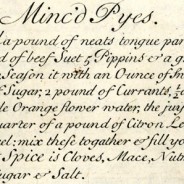 Minc'd Pyes.
a pound of neats tongue par
d of beef Suet 5 Pippins & a g
Season it with an Ounce of
f Sugar, 2 pound of Currants,
le Orange flower water, the juy
uarter of a pound of Citron Le
el: mix these together & fill yo
Spice is Cloves, Mace, Nut
ugar & Salt.